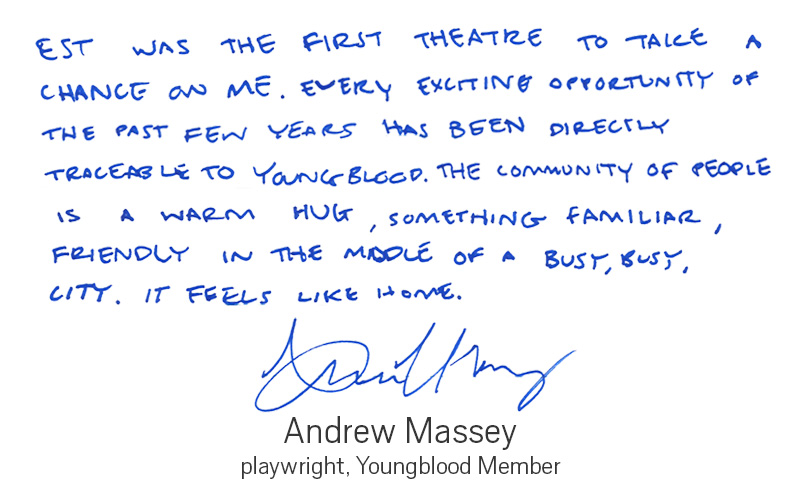 EST WAS THE FIRST THEATRE TO TAKE A
CHANCE ON ME. EVERY EXCITING OPPORTUNITY OF
THE PAST FEW YEARS HAS BEEN DIRECTLY
TRACEABLE TO YOUNGBLOOD. THE COMMUNITY OF PEOPLE
IS A WARM HUG, SOMETHING FAMILIAR,
FRIENDLY IN THE MIDDLE OF A BUSY, BUSY,
CITY. IT FEELS LIKE HOME.
Andrew Massey
playwright, Youngblood Member